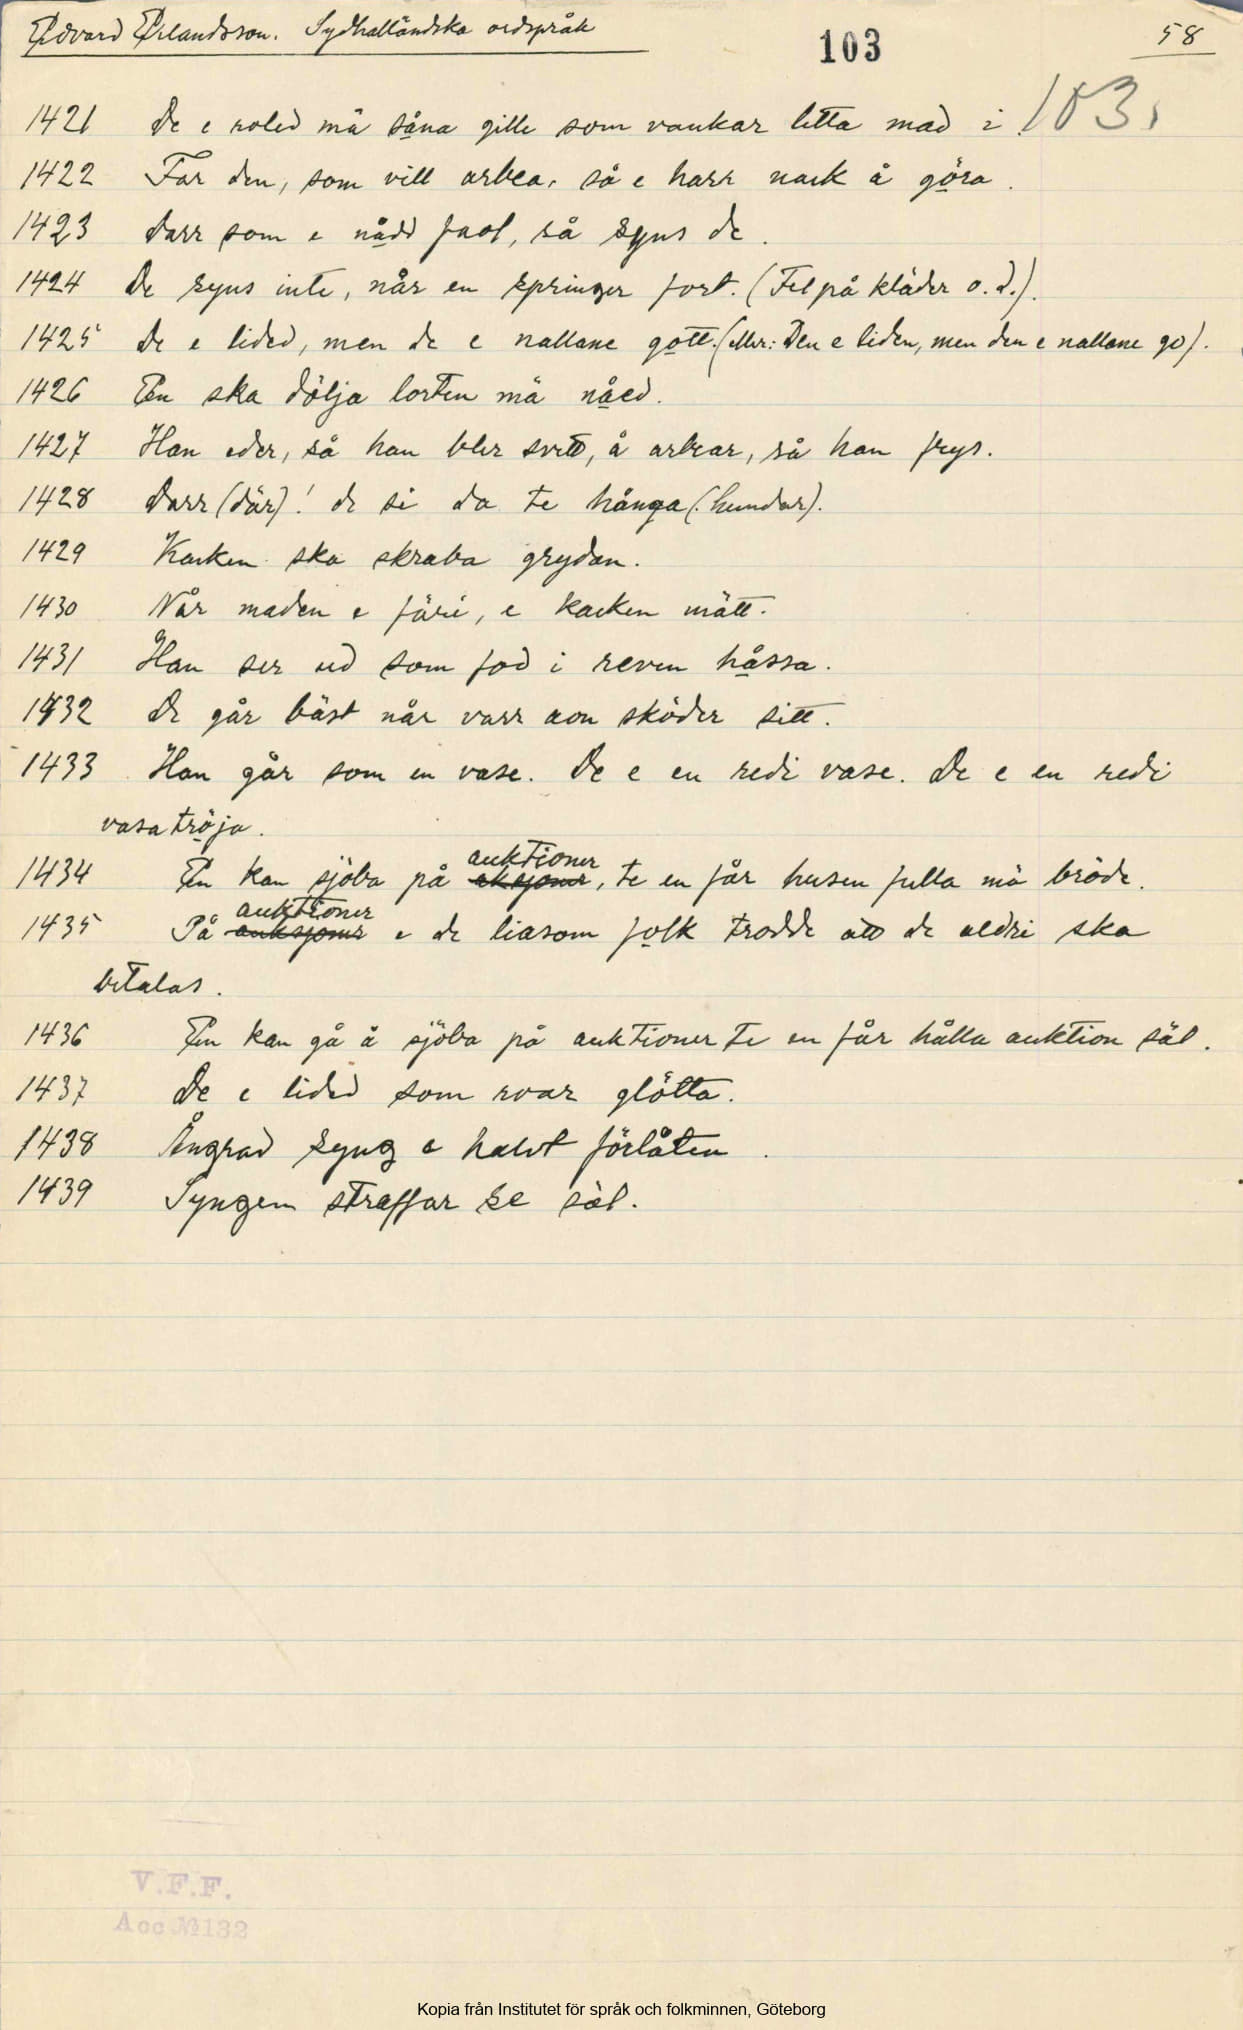 Edvard Erlandsson. Sydhalländska ordspråk
103
58
103.
1421 De e roled mä såna gille som vankar litta mad i.
1422 Far den, som vill arbea, så e harr nack å göra.
1423 Darr som e nåd faol, så syns de.
1424 De syns inte, når en springer fort. (Fel på kläder o.d.).
1425 De e lided, men de e nallane gott. (eller: Den e liden, men den e nallane go).
1426 En ska dölja lorten mä nåed.
1427 Han eder, så han bler svett, å arbear, så han frys.
1428 Darr (där)! de si da te hånga (hundar).
1429 Kocken ska skraba grydan.
1430 Når maden e färi, e kocken mätt.
1431 Han ser ud som fod i reven håssa.
1432 De går bäst når varr aon sköder sitt.
1433 Han går som en vase. De e en redi vase. De e en redi
vasatröja.
auktioner
1434 En kan sjöba på, te en får husen fulla mä bröde.
auktioner
1435 På auksjoner e de liasom folk trodde att de aldri ska
betalas.
1436 En kan gå å sjöba på auktioner te en får hålla auktion säl.
1437 De e lided som roar glötta.
1438 Ångrad syng e halvt förlåten.
1439 Syngen straffar se säl.
V.F.F.
Acc № 132
Kopia från Institutet för språk och folkminnen, Göteborg